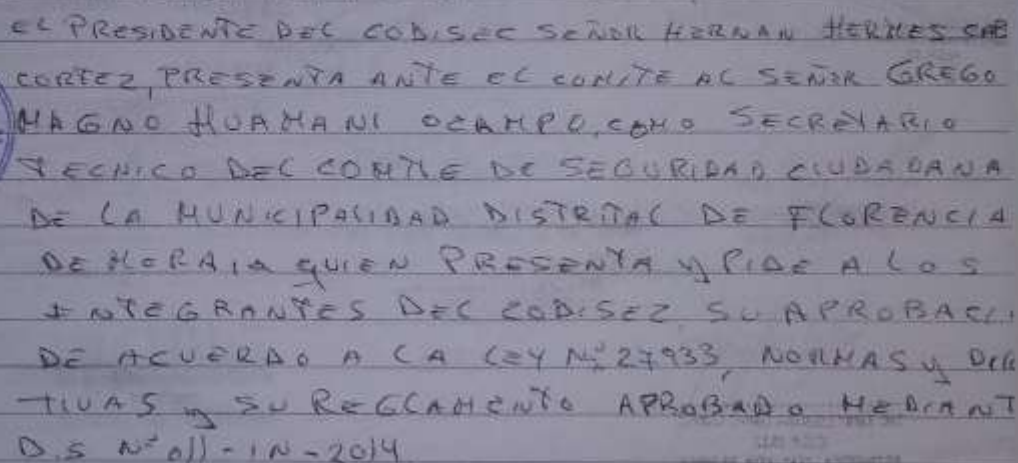 EL PRESIDENTE DEL CODISEC SEÑOR HERNAN HERMES
CORTEZ, PRESENTA ANTE EL COMITE AL SEÑOR GREGO
MAGNO HUAMANI OCAMPO, COMO SECRETARIO
TECNICO DEL COMITE DE SEGURIDAD CIUDADANA
DE LA MUNICIPALIDAD DISTRITAL DE FLORENCIA
DE MORA, QUIEN PRESENTA y PIDE A LOS
INTEGRANTES DEL CODISEZ SU APROBACI
DE ACUERDO A LA LEY Nº 27933, NORMAS y DIREC
TIVAS y SU REGLAMENTO APROBADO MEDIANT
D.S Nº 011-IN-2014